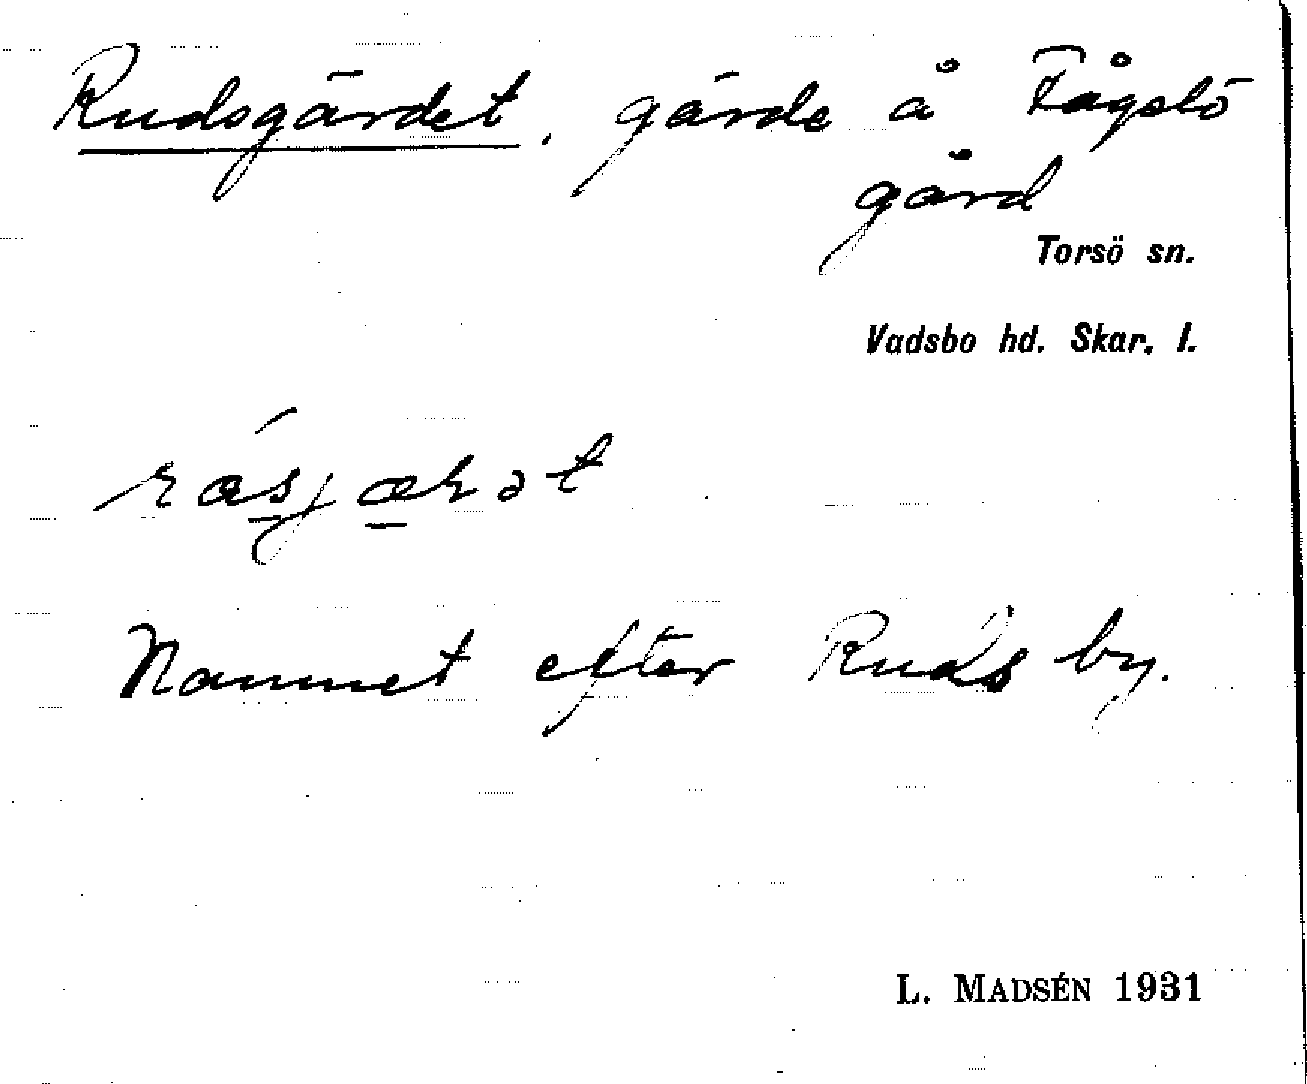 Rudsgärdet, gärde å Fågelö
gård
Torsö sn.
Vadsbo hd. Skar. l.
Namnet efter Ruds by.
L. MADSÉN 1931